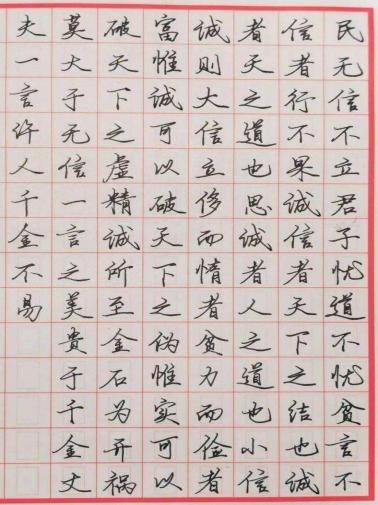 民无信不立君子忧道不忧贫言不
信者行不果诚信者天下之结也诚
者天之道也思诚者人之道也小信
诚则大信立侈而惰者贫力而俭者
富惟诚可以破天下之伪惟实可以
破天下之虚精诚所至金石为开祸
莫大于无信一言之美贵于千金丈
夫一言许人千金不易